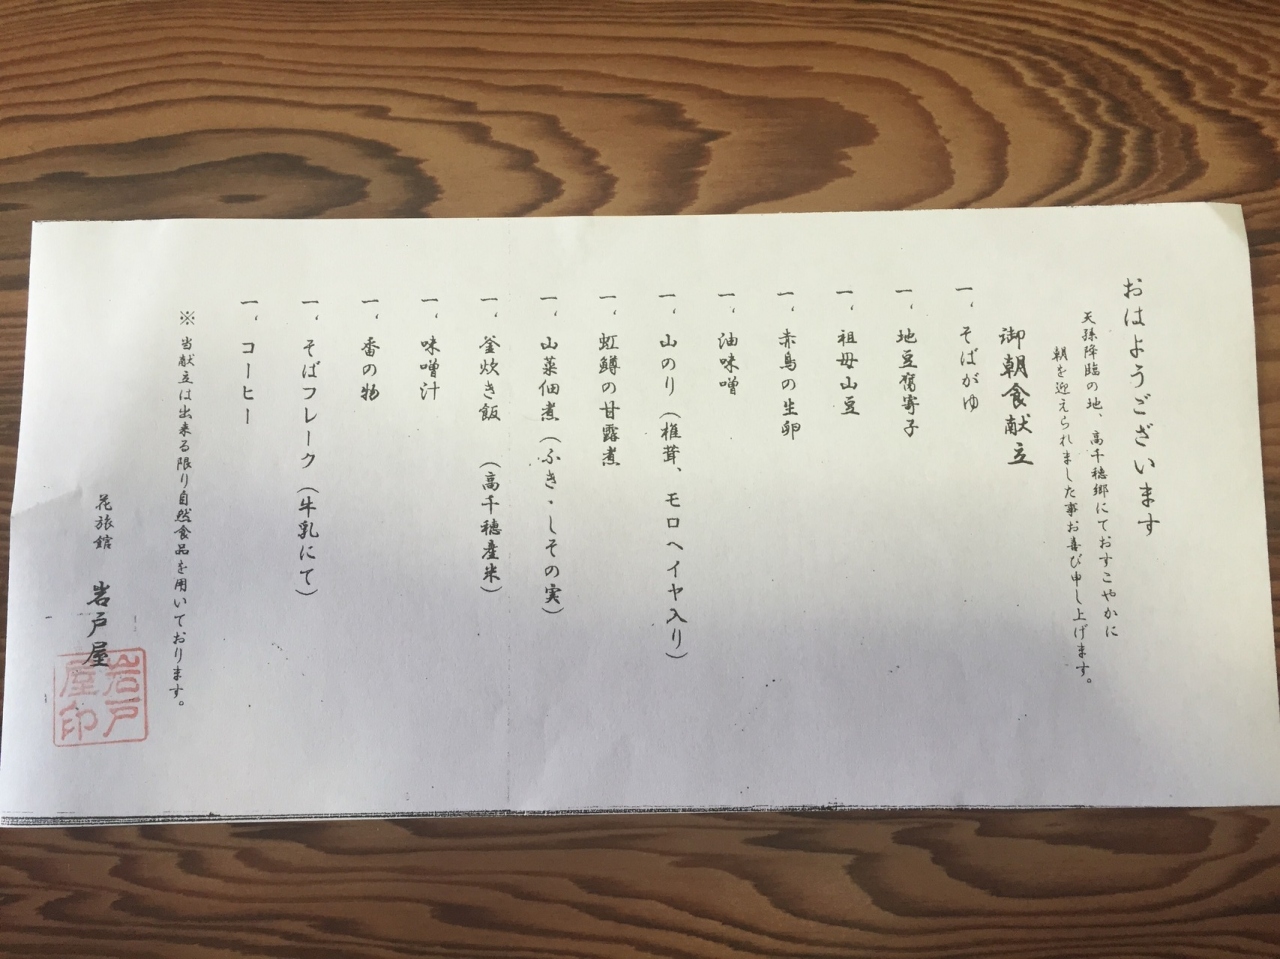 おはようございます
天孫降臨の地、高千穂郷にておすこやかに
朝を迎えられました事お喜び申し上げます。
御朝食献立
一、そばがゆ
一、地豆腐寄子
一、祖母山豆
一、赤鳥の生卵
一、油味噌
一、山のり（椎茸、モロヘイヤ入り）
一、虹鱒の甘露煮
一、山菜佃煮（ふき・しその実）
一、釜炊き飯（高千穂産米）
一、味噌汁
一、香の物
一、そばフレーク（牛乳にて）
一、コーヒー
※当献立は出来る限り自然食品を用いております。
花旅館 岩戸屋
岩戸
屋印